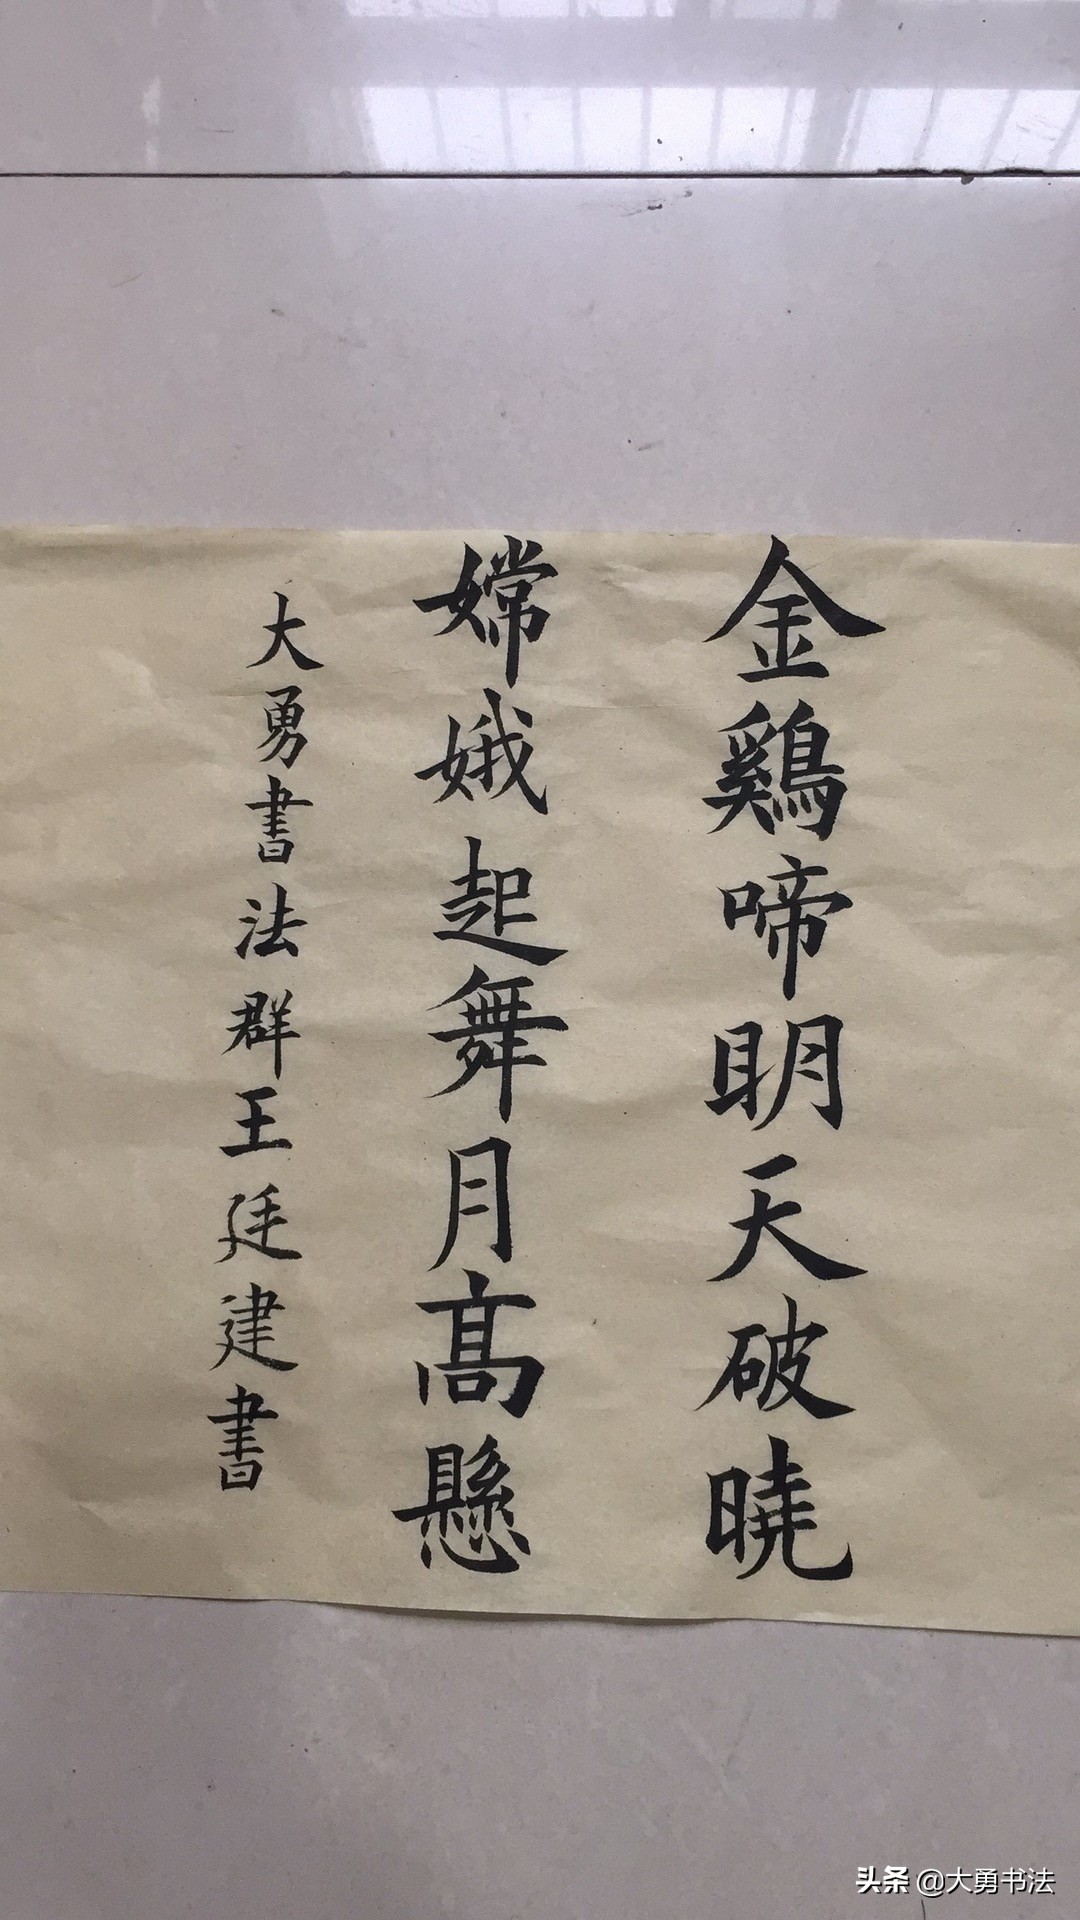 金鷄啼明天破曉
嫦娥起舞月髙懸
大勇書法群王廷建書
头条 @大勇书法